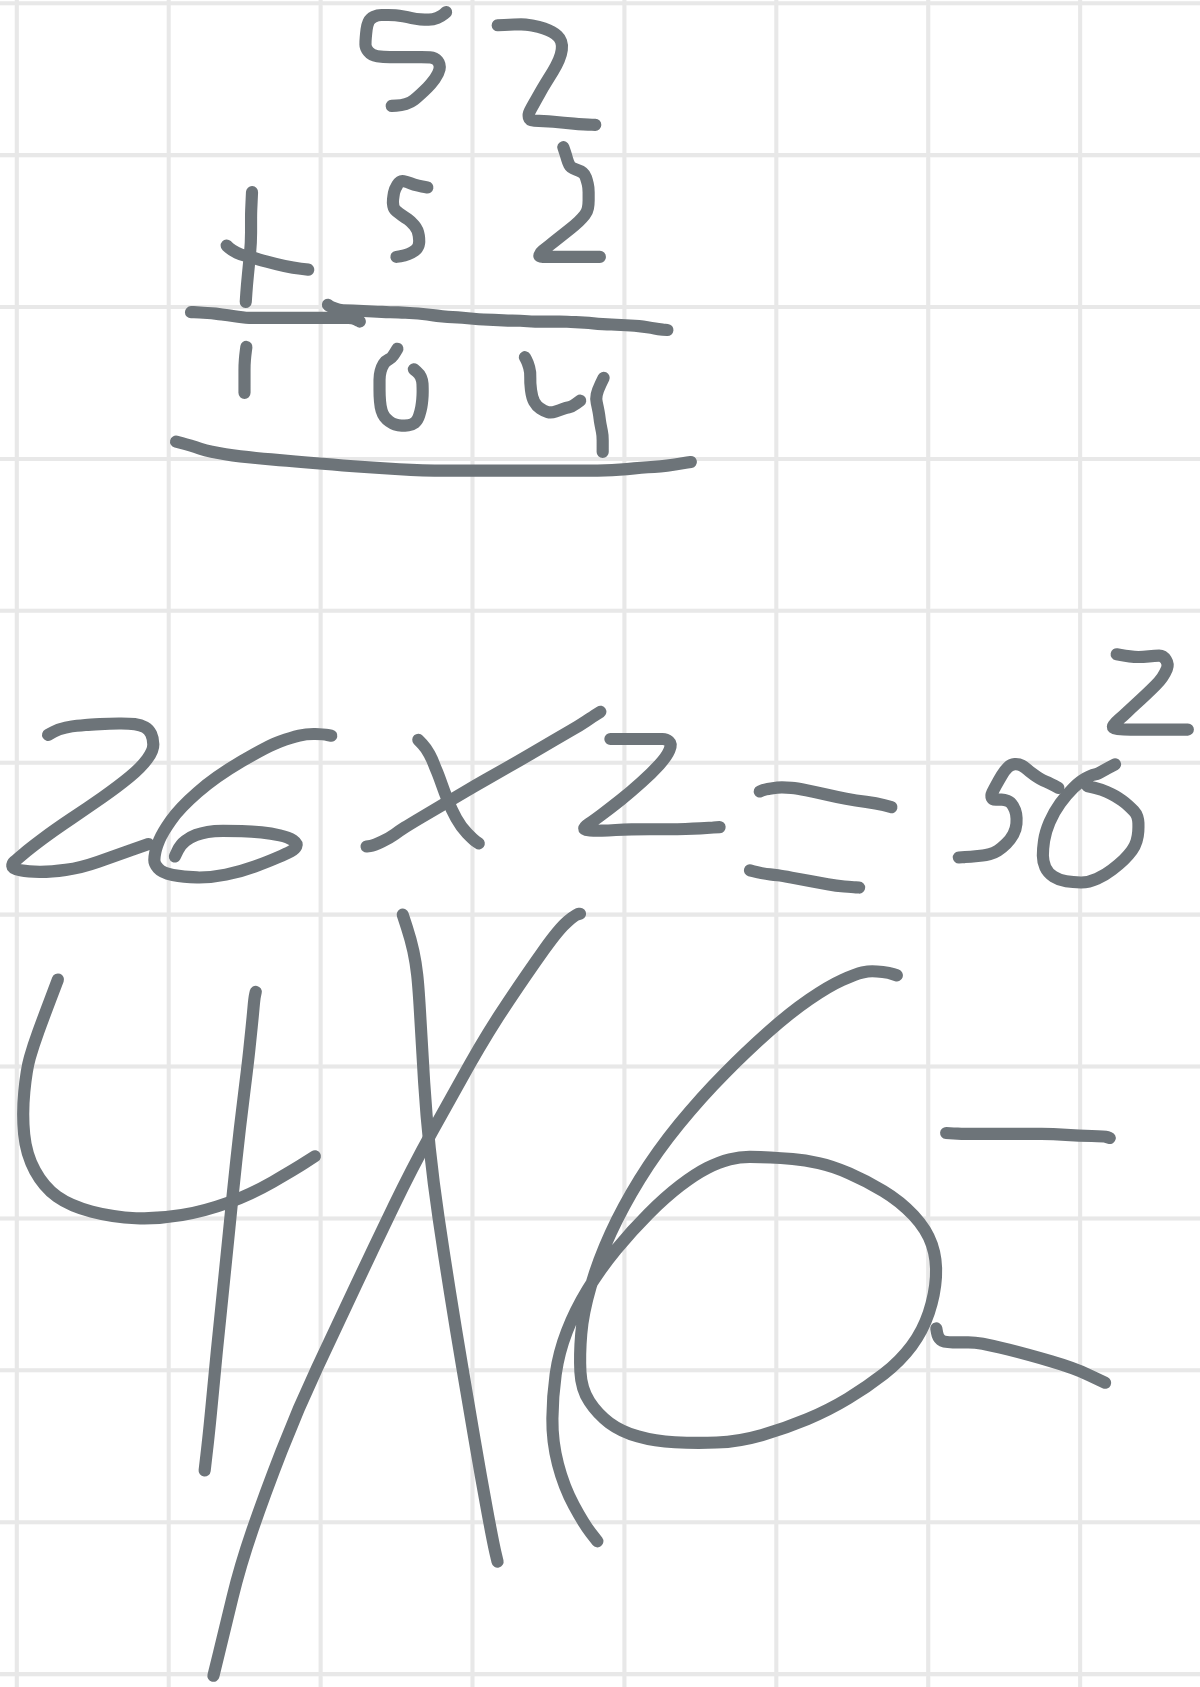 52
+ 52
104
26 x 2 = 50²
4 x 6 =